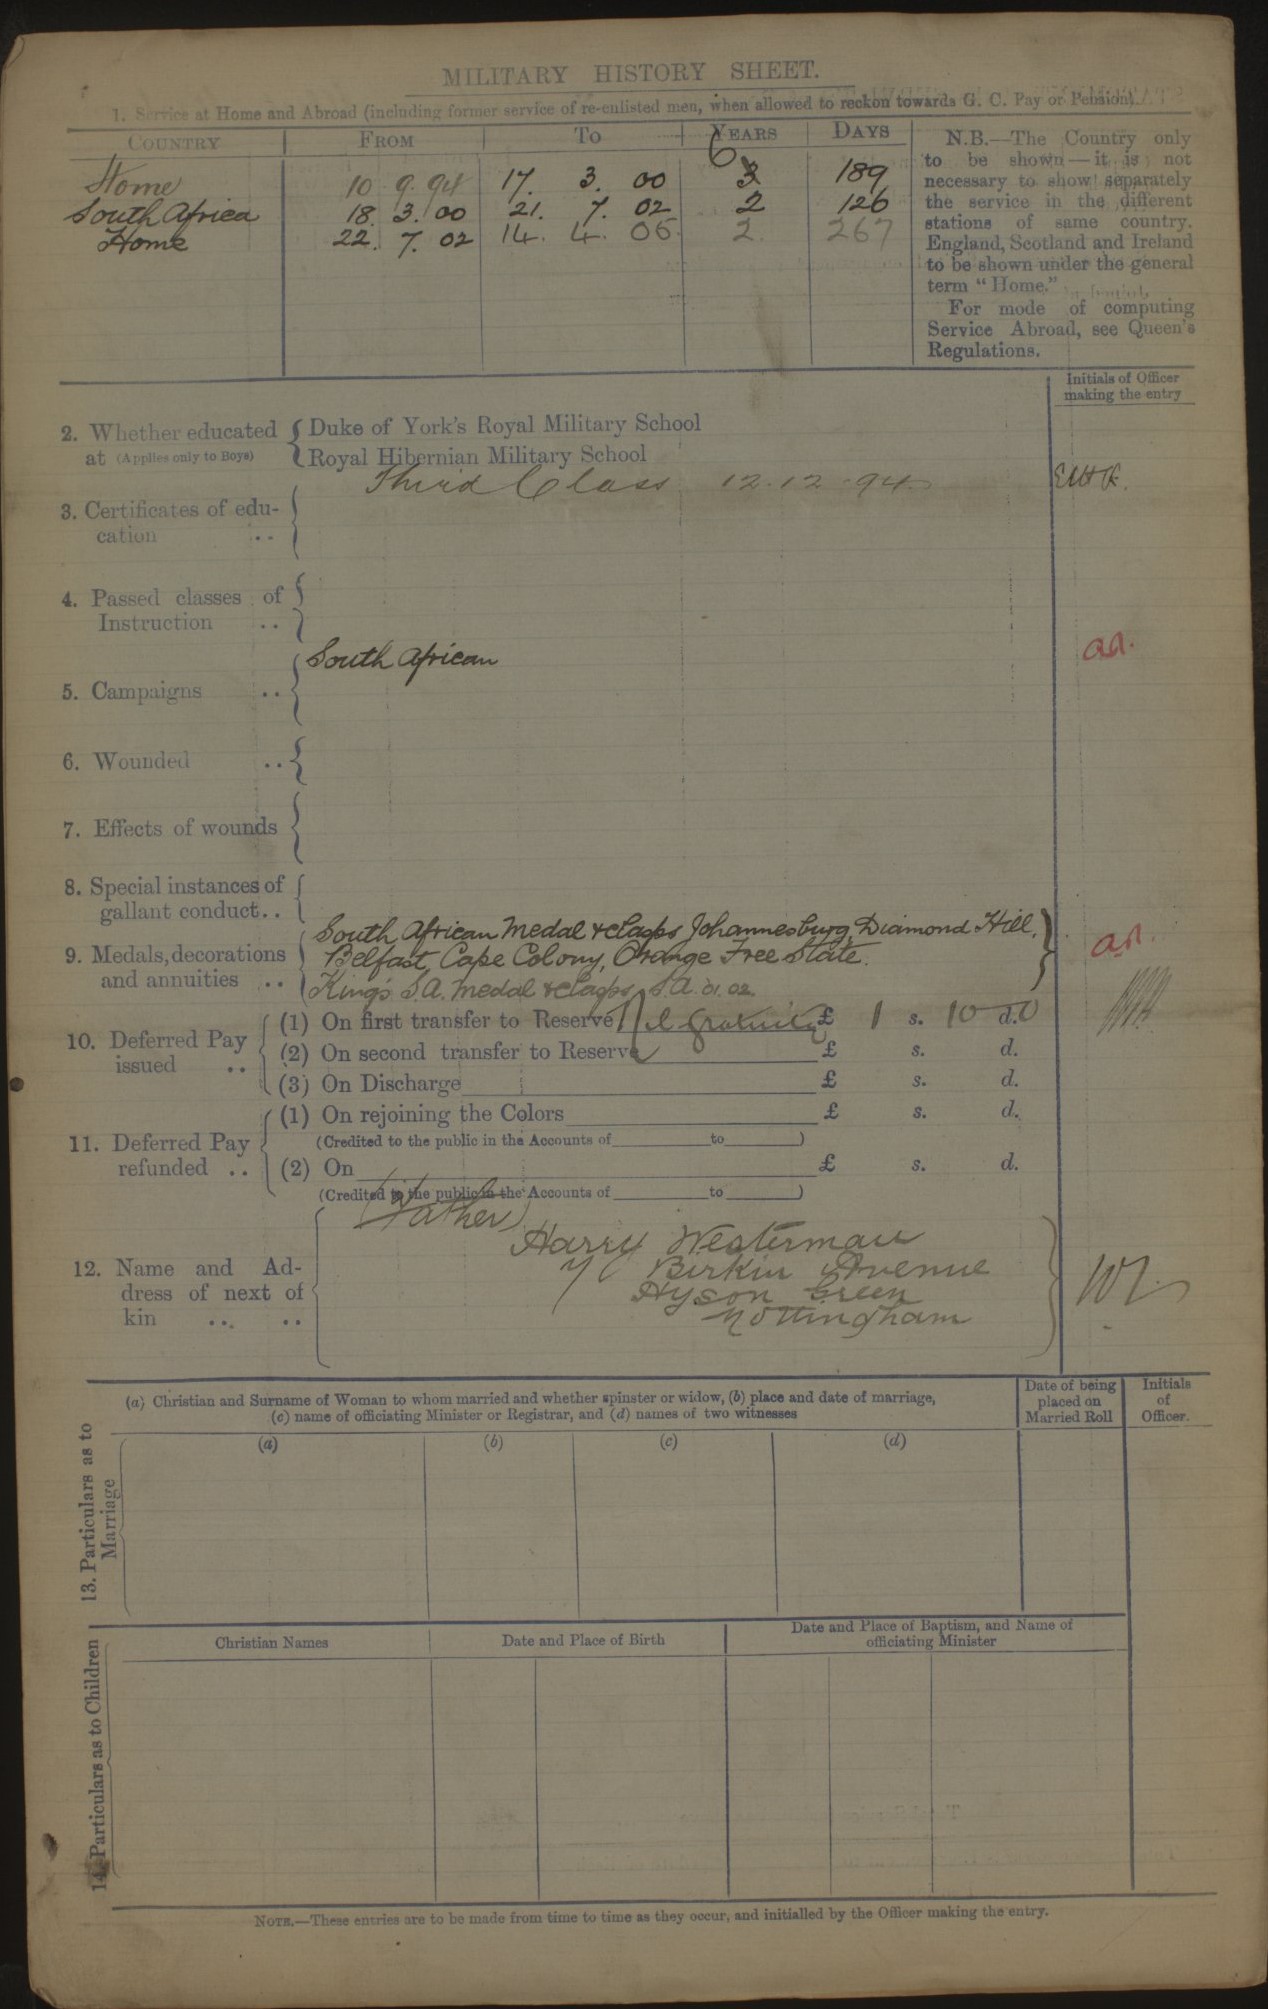 MILITARY HISTORY SHEET.
1. Service at Home and Abroad (including former service of re-enlisted men, when allowed to reckon towards G. C. Pay or Pension).
COUNTRY FROM TO YEARS DAYS
Home 10 9 94 17. 3. 00 6 3 189
South Africa 18. 3. 00 21. 7. 02 2 126
Home 22. 7. 02 14. 4. 05 2. 267
N.B.—The Country only
to be shown—it is not
necessary to show separately
the service in the different
stations of same country.
England, Scotland and Ireland
to be shown under the general
term "Home."
For mode of computing
Service Abroad, see Queen's
Regulations.
Initials of Officer
making the entry
2. Whether educated
at (Applies only to Boys)
Duke of York's Royal Military School
Royal Hibernian Military School
Third Class 12.12.94
3. Certificates of edu-
cation ..
4. Passed classes of
Instruction ..
South African
5. Campaigns ..
6. Wounded ..
7. Effects of wounds
8. Special instances of
gallant conduct..
9. Medals, decorations
and annuities ..
South African Medal & clasps Johannesburg, Diamond Hill,
Belfast, Cape Colony, Orange Free State.
King's S.A. Medal & clasps S.A. 01. 02.
10. Deferred Pay
issued ..
(1) On first transfer to Reserve Gratuity £ 1 s. 10 d. 0
(2) On second transfer to Reserve £ s. d.
(3) On Discharge £ s. d.
11. Deferred Pay
refunded ..
(1) On rejoining the Colors £ s. d.
(Credited to the public in the Accounts of to )
(2) On £ s. d.
(Credited to the public in the Accounts of to )
12. Name and Ad-
dress of next of
kin .. ..
(Father)
Harry Westerman
Birkin Avenue
Hyson Green
Nottingham
13. Particulars as to
Marriage
(a) Christian and Surname of Woman to whom married and whether spinster or widow, (b) place and date of marriage,
(c) name of officiating Minister or Registrar, and (d) names of two witnesses
Date of being
placed on
Married Roll
Initials
of
Officer.
(a) (b) (c) (d)
14. Particulars as to Children
Christian Names
Date and Place of Birth
Date and Place of Baptism, and Name of
officiating Minister
NOTE.—These entries are to be made from time to time as they occur, and initialled by the Officer making the entry.